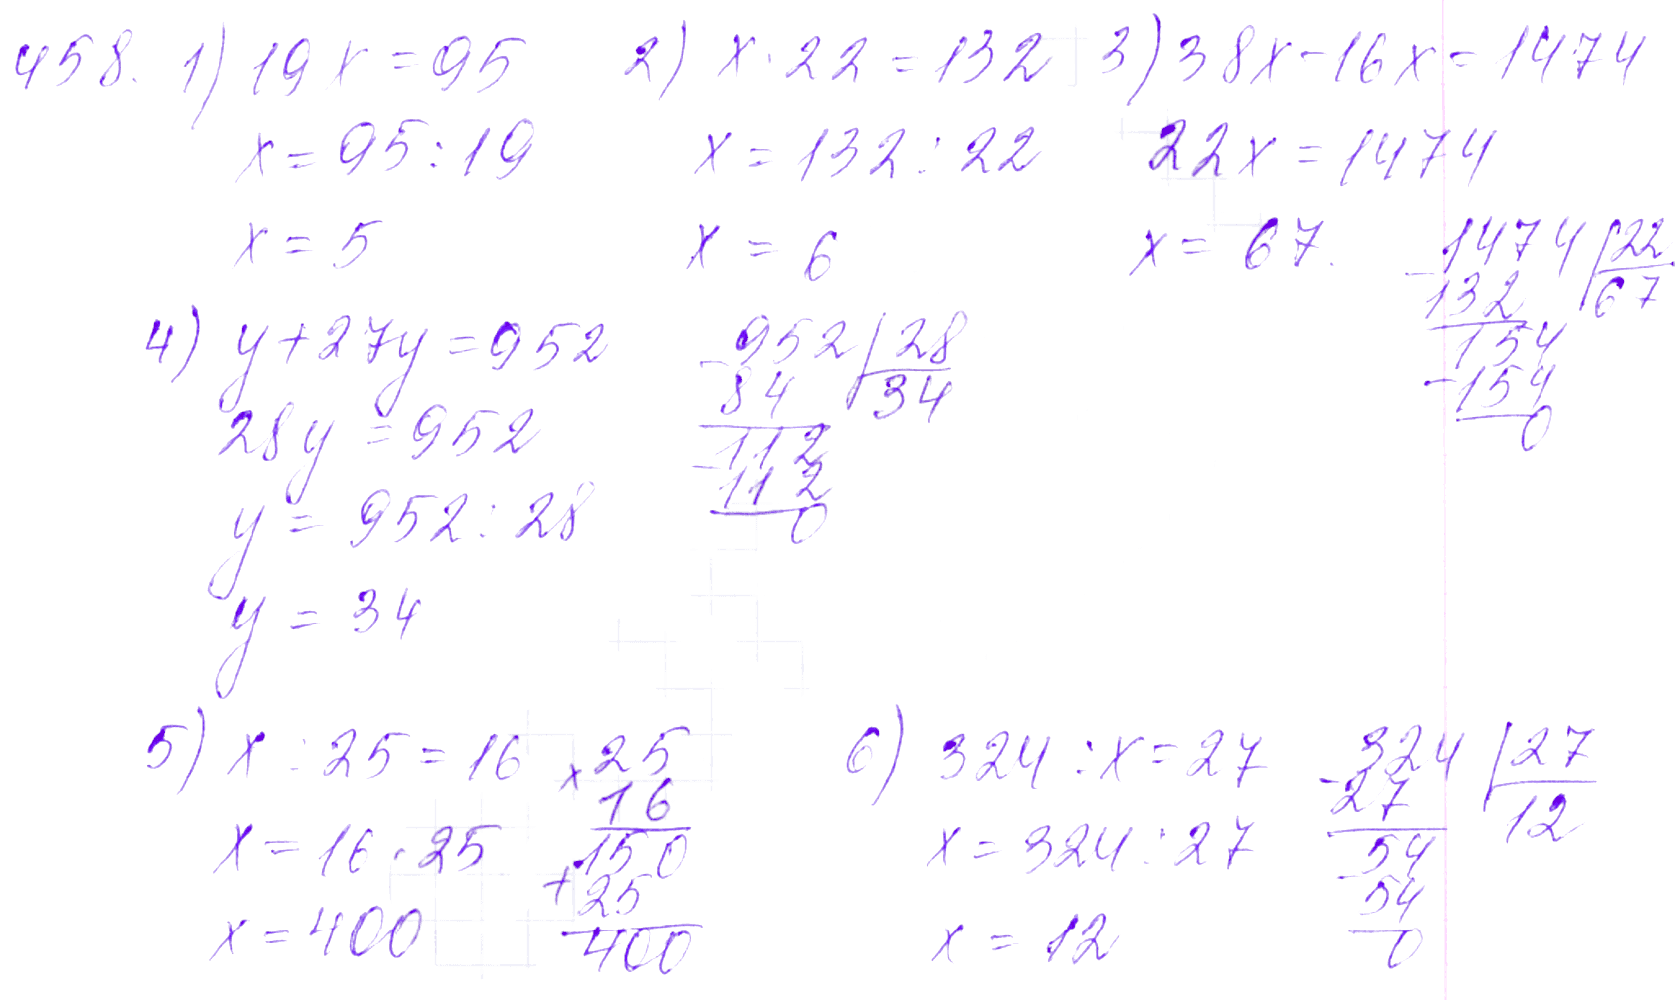 458. 1) 19x = 95 2) x · 22 = 132 3) 38x - 16x = 1474
x = 95 : 19 x = 132 : 22 22x = 1474
x = 5 x = 6 x = 67.
1474 | 22
- 132 67
154
- 154
0
4) y + 27y = 952
28y = 952
y = 952 : 28
y = 34
- 952 | 28
84 34
- 112
112
0
5) x : 25 = 16
x = 16 · 25
x = 400
× 25
16
150
+ 25
400
6) 324 : x = 27
x = 324 : 27
x = 12
- 324 | 27
27 12
- 54
54
0